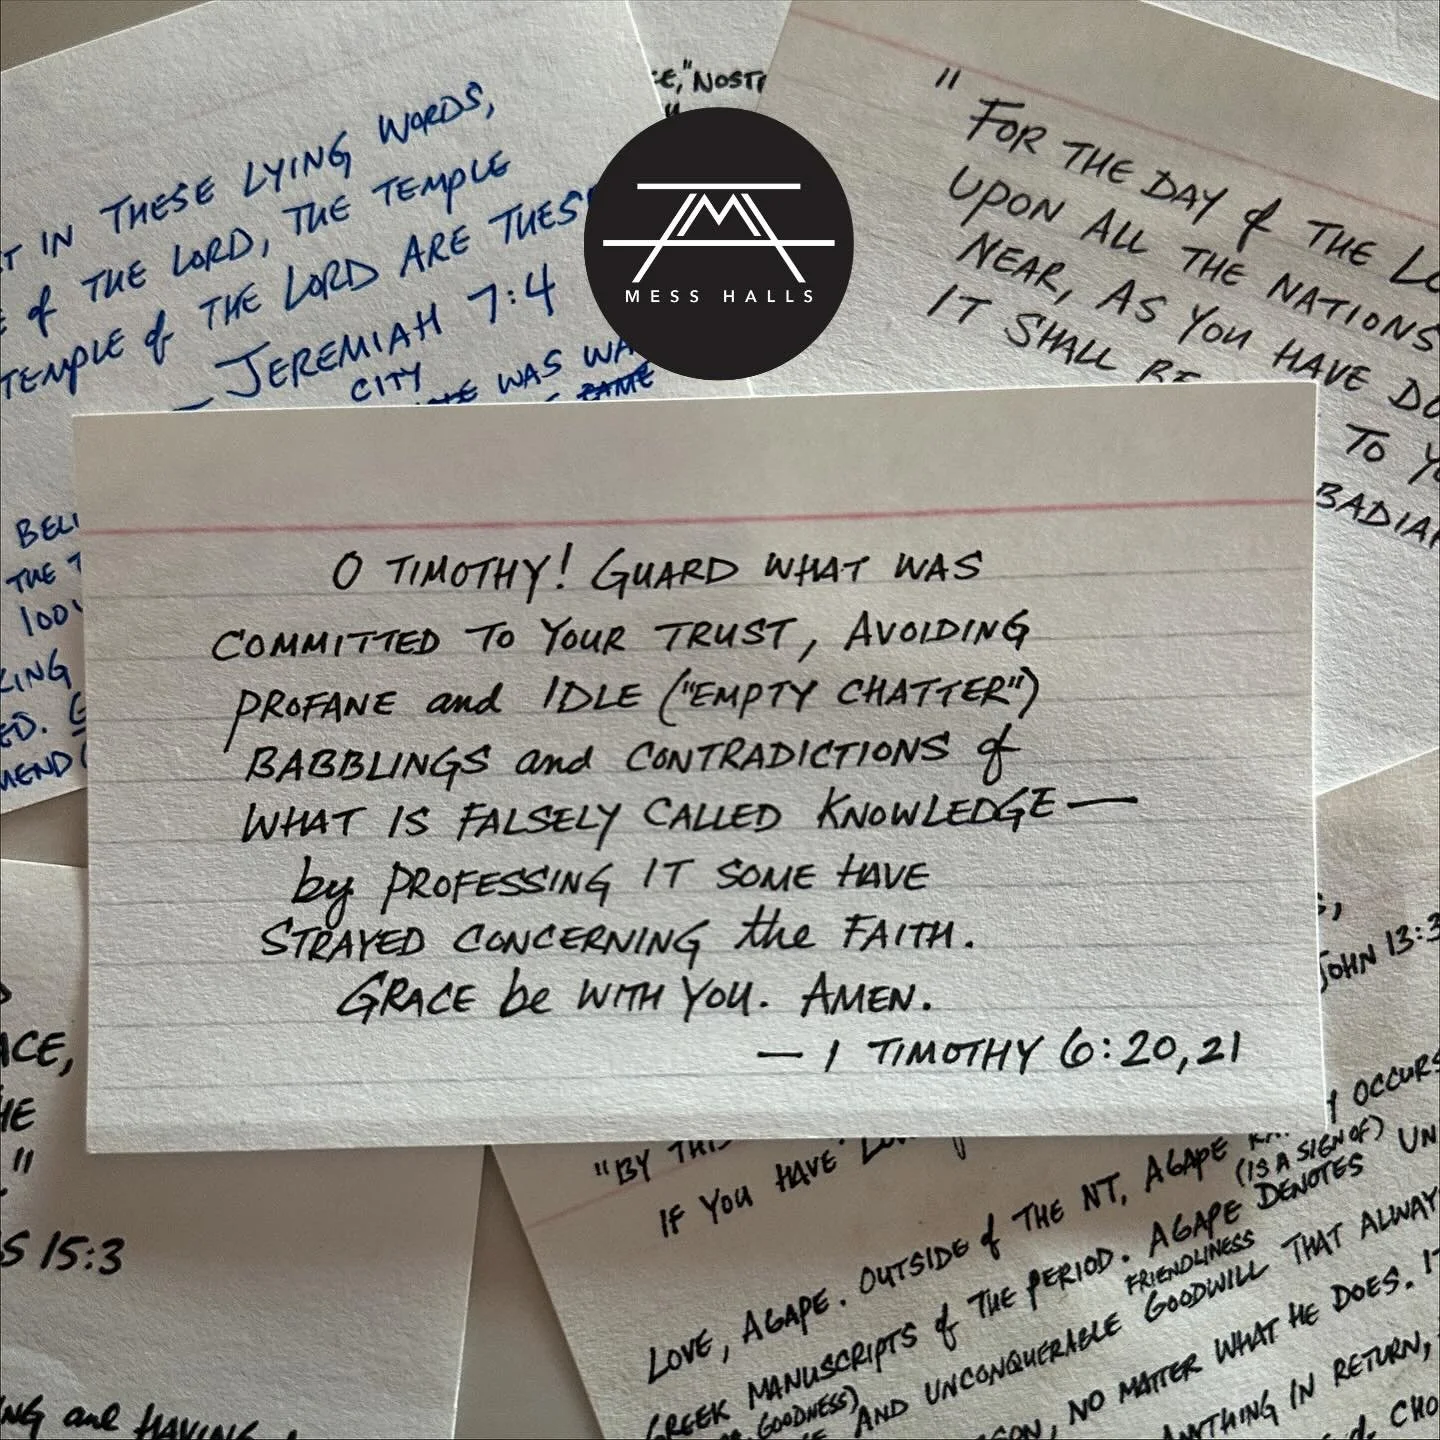 THESE LYING WORDS,
THE LORD, THE TEMPLE
TEMPLE of THE LORD ARE
— JEREMIAH 7:4
CITY
WAS
MESS HALLS
"FOR THE DAY of THE
UPON ALL THE NATIONS
NEAR, AS YOU HAVE
IT SHALL
TO
O TIMOTHY! GUARD WHAT WAS
COMMITTED TO YOUR TRUST, AVOIDING
PROFANE and IDLE ("EMPTY CHATTER")
BABBLINGS and CONTRADICTIONS of
WHAT IS FALSELY CALLED KNOWLEDGE —
by PROFESSING IT SOME HAVE
STRAYED CONCERNING the FAITH.
GRACE be WITH YOU. AMEN.
— 1 TIMOTHY 6:20,21
15:3
and HAVING
"BY THIS
IF YOU HAVE
LOVE, AGAPE. OUTSIDE of THE NT, AGAPE OCCURS
(IS A SIGN OF)
GREEK MANUSCRIPTS of THE PERIOD. AGAPE DENOTES
FRIENDLINESS
GOODNESS)
AND UNCONQUERABLE GOODWILL THAT
NO MATTER WHAT HE DOES.
ANYTHING IN RETURN,